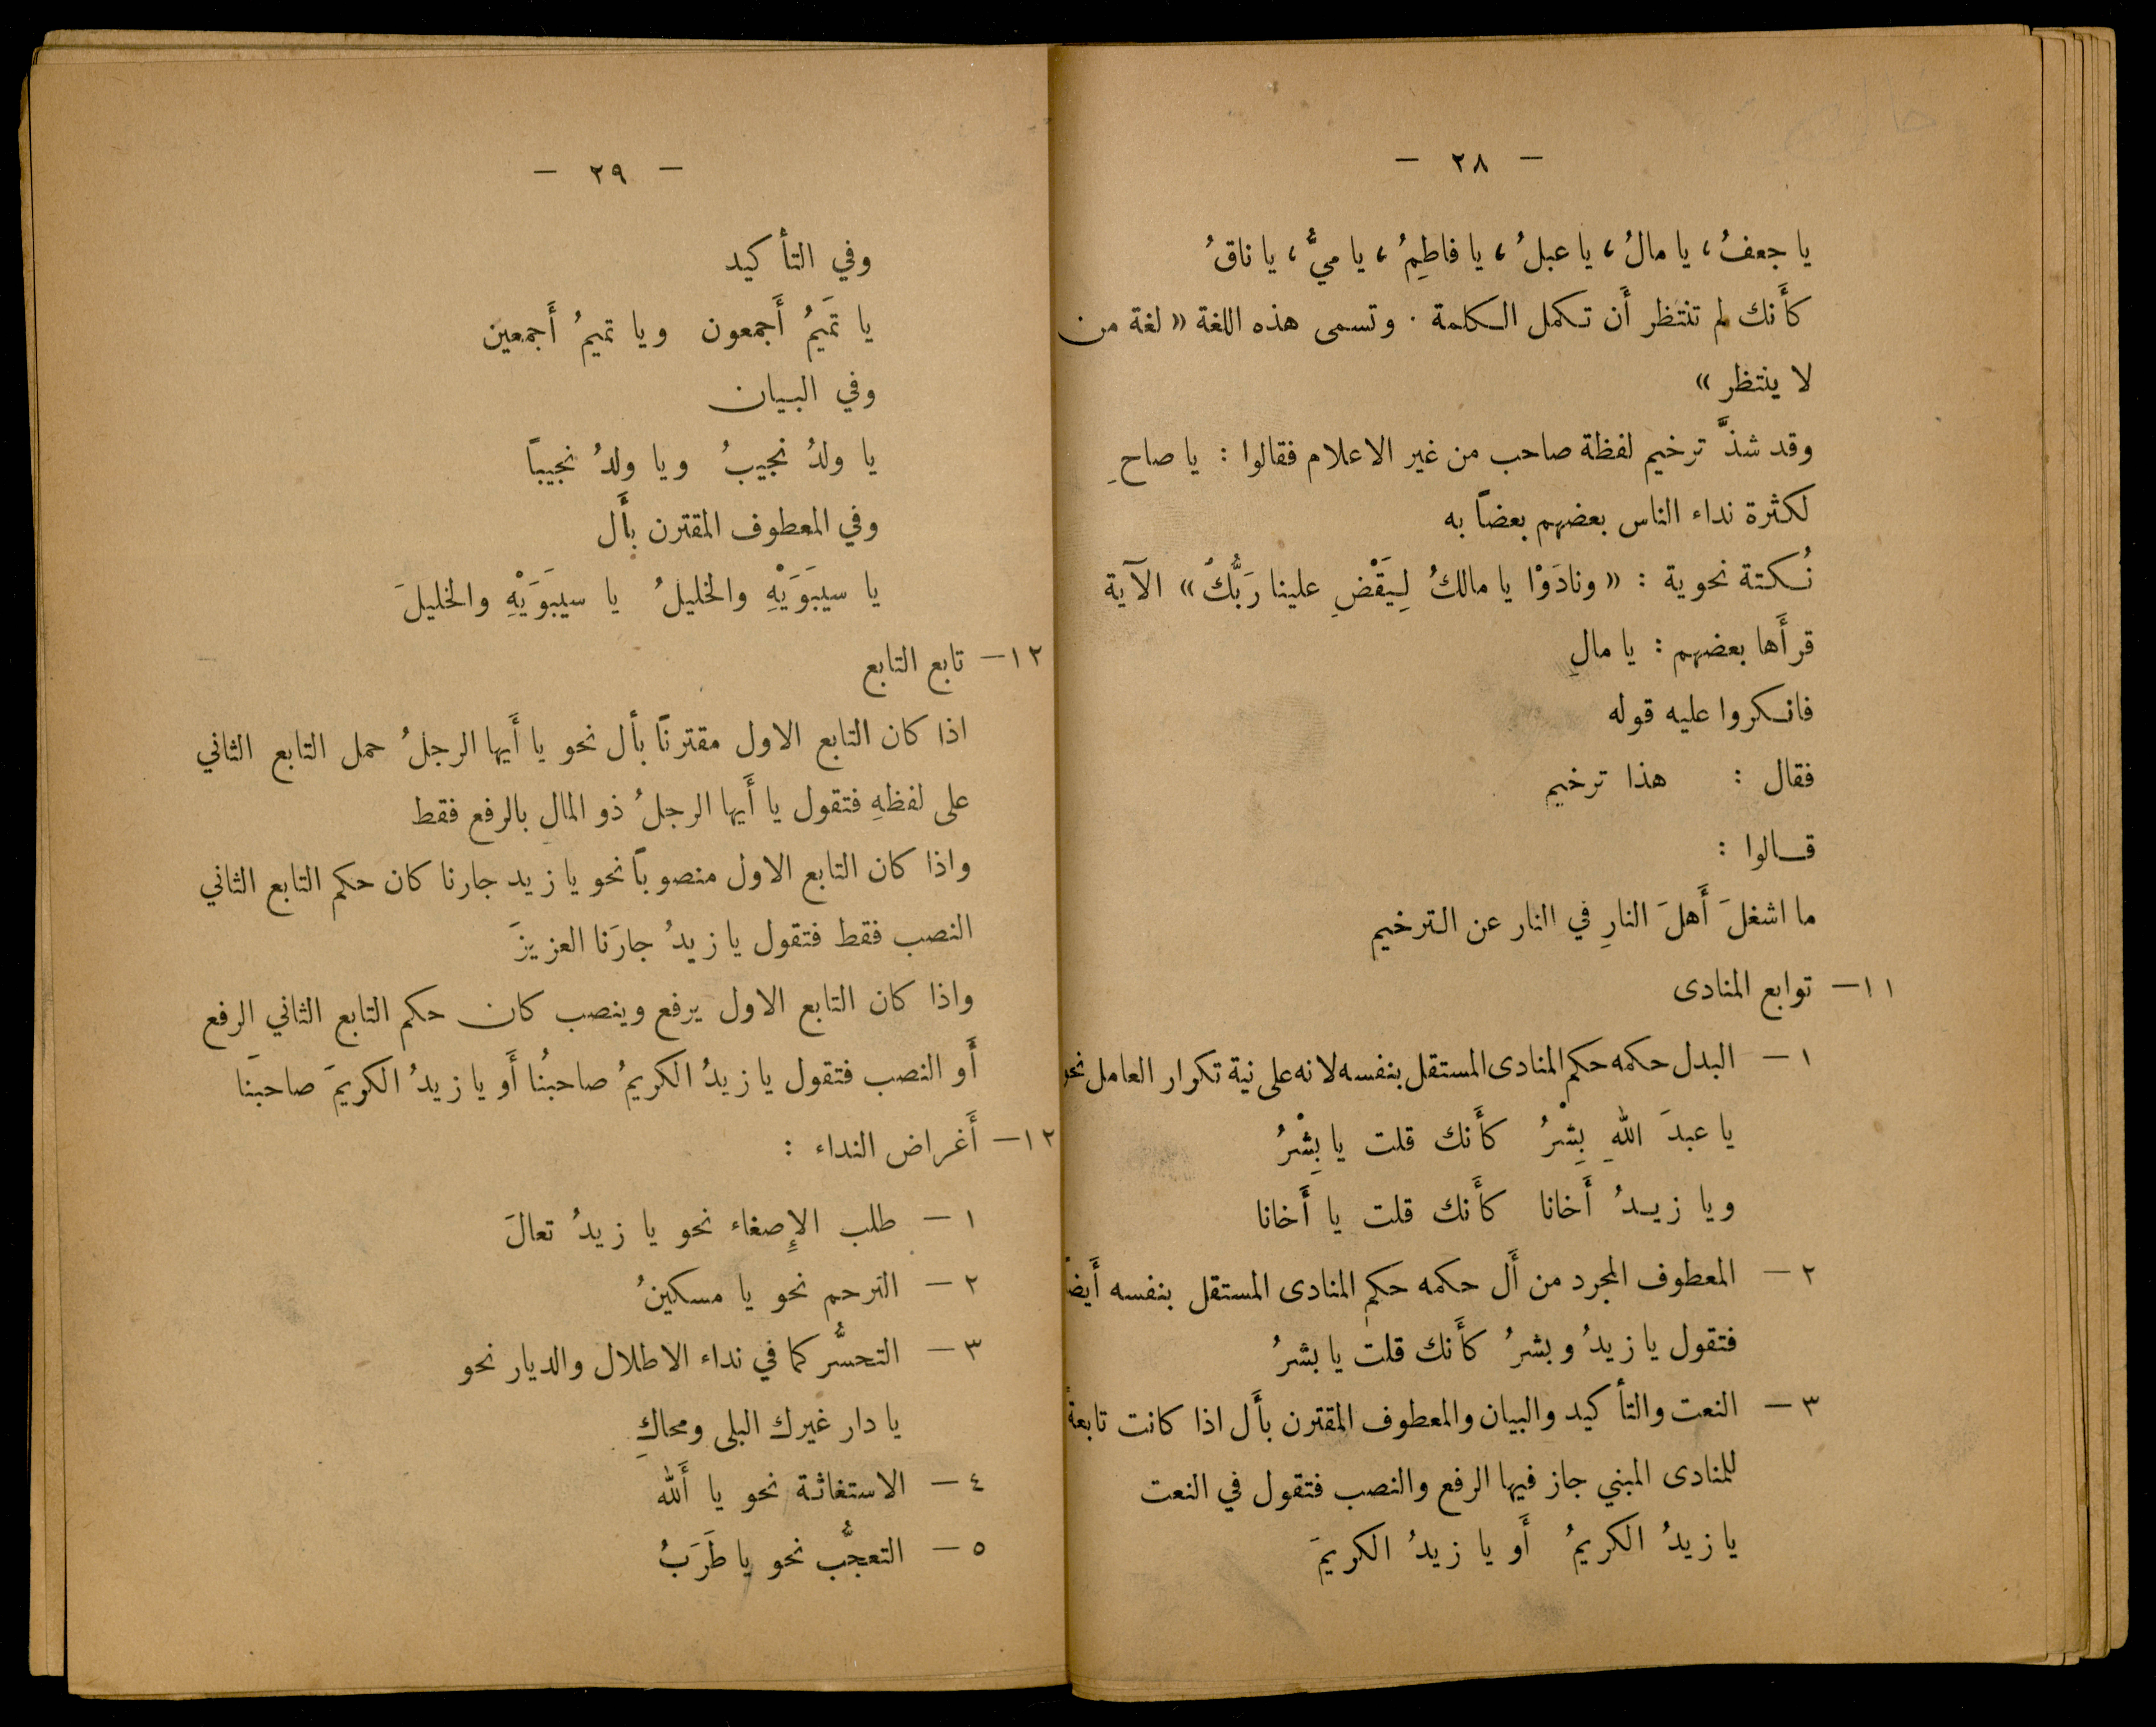 — ٢٨ —
يا جعفُ ، يا مالُ ، يا عبلُ ، يا فاطِمُ ، يا ميُّ ، يا ناقُ
كأَنك لم تنتظر أَن تكمل الكلمة . وتسمى هذه اللغة « لغة من
لا ينتظر »
وقد شذَّ ترخيم لفظة صاحب من غير الاعلام فقالوا : يا صاحِ
لكثرة نداء الناس بعضهم بعضاً به
نُكتة نحوية : « ونادَوْا يا مالكُ لِيَقْضِ علينا رَبُّكَ » الآية
قرأَها بعضهم : يا مالِ
فانكروا عليه قوله
فقال : هذا ترخيم
قالوا :
ما اشغلَ أَهلَ النارِ في النار عن الترخيم
١١— توابع المنادى
١ — البدل حكمه حكم المنادى المستقل بنفسه لانه على نية تكرار العامل نحو
يا عبدَ اللهِ بِشْرُ كأَنك قلت يا بِشْرُ
ويا زيدُ أَخانا كأَنك قلت يا أَخانا
٢ — المعطوف المجرد من أَل حكمه حكم المنادى المستقل بنفسه أَيضاً
فتقول يا زيدُ وبشرُ كأَنك قلت يا بشرُ
٣ — النعت والتأكيد والبيان والمعطوف المقترن بأَل اذا كانت تابعة
للمنادى المبني جاز فيها الرفع والنصب فتقول في النعت
يا زيدُ الكريمُ أَو يا زيدُ الكريمَ
— ٢٩ —
وفي التأكيد
يا تَميمُ أَجمعون ويا تميمُ أَجمعين
وفي البيان
يا ولدُ نجيبُ ويا ولدُ نجيباً
وفي المعطوف المقترن بأَل
يا سيبَوَيْهِ والخليلُ يا سيبَوَيْهِ والخليلَ
١٢— تابع التابع
اذا كان التابع الاول مقترناً بأل نحو يا أَيها الرجلُ حمل التابع الثاني
على لفظهِ فتقول يا أَيها الرجلُ ذو المالِ بالرفع فقط
واذا كان التابع الاول منصوباً نحو يا زيد جارنا كان حكم التابع الثاني
النصب فقط فتقول يا زيدُ جارَنا العزيزَ
واذا كان التابع الاول يرفع وينصب كان حكم التابع الثاني الرفع
أَو النصب فتقول يا زيدُ الكريمُ صاحبُنا أَو يا زيدُ الكريمَ صاحبَنا
١٢— أَغراض النداء :
١ — طلب الإِصغاء نحو يا زيدُ تعالَ
٢ — الترحم نحو يا مسكينُ
٣ — التحسُّر كما في نداء الاطلال والديار نحو
يا دار غيرك البلى ومحاكِ
٤ — الاستغاثة نحو يا أَلله
٥ — التعجُّب نحو يا طَرَبُ